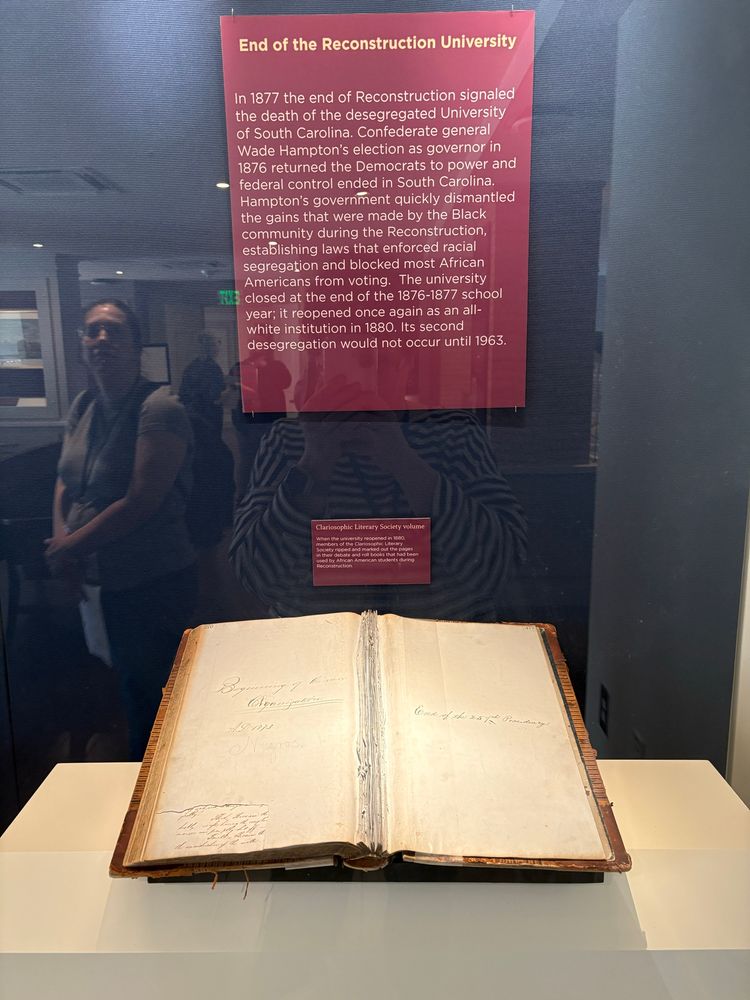 End of the Reconstruction University
In 1877 the end of Reconstruction signaled
the death of the desegregated University
of South Carolina. Confederate general
Wade Hampton's election as governor in
1876 returned the Democrats to power and
federal control ended in South Carolina.
Hampton's government quickly dismantled
the gains that were made by the Black
community during the Reconstruction,
establishing laws that enforced racial
segregation and blocked most African
Americans from voting. The university
closed at the end of the 1876-1877 school
year; it reopened once again as an all-
white institution in 1880. Its second
desegregation would not occur until 1963.
Clariosophic Literary Society volume
When the university reopened in 1880,
members of the Clariosophic Literary
Society ripped and marked out the pages
in their debate and roll books that had been
used by African American students during
Reconstruction.
Beginning of
End of the Presidency